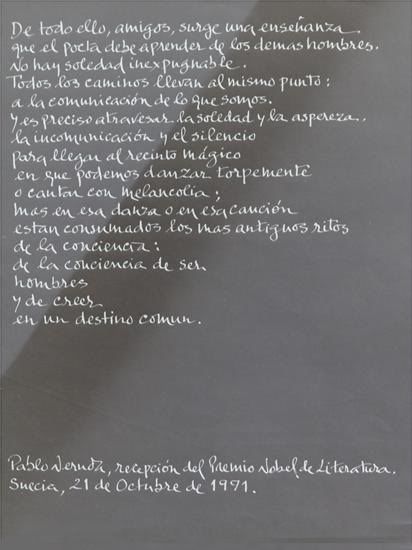 De todo ello, amigos, surge una enseñanza
que el poeta debe aprender de los demas hombres.
No hay soledad inexpugnable.
Todos los caminos llevan al mismo punto:
a la comunicación de lo que somos.
Y es preciso atravesar la soledad y la aspereza,
la incomunicación y el silencio
para llegar al recinto mágico
en que podemos danzar torpemente
o cantar con melancolia;
mas en esa danza o en esa canción
estan consumados los mas antiguos ritos
de la conciencia:
de la conciencia de ser
hombres
y de creer
en un destino comun.
Pablo Neruda, recepción del Premio Nobel de Literatura.
Suecia, 21 de Octubre de 1971.